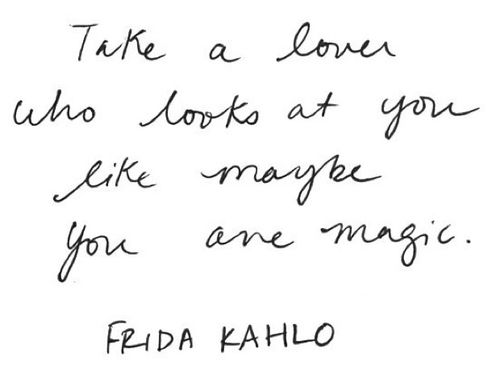 Take a lover
who looks at you
like maybe
you are magic.
FRIDA KAHLO